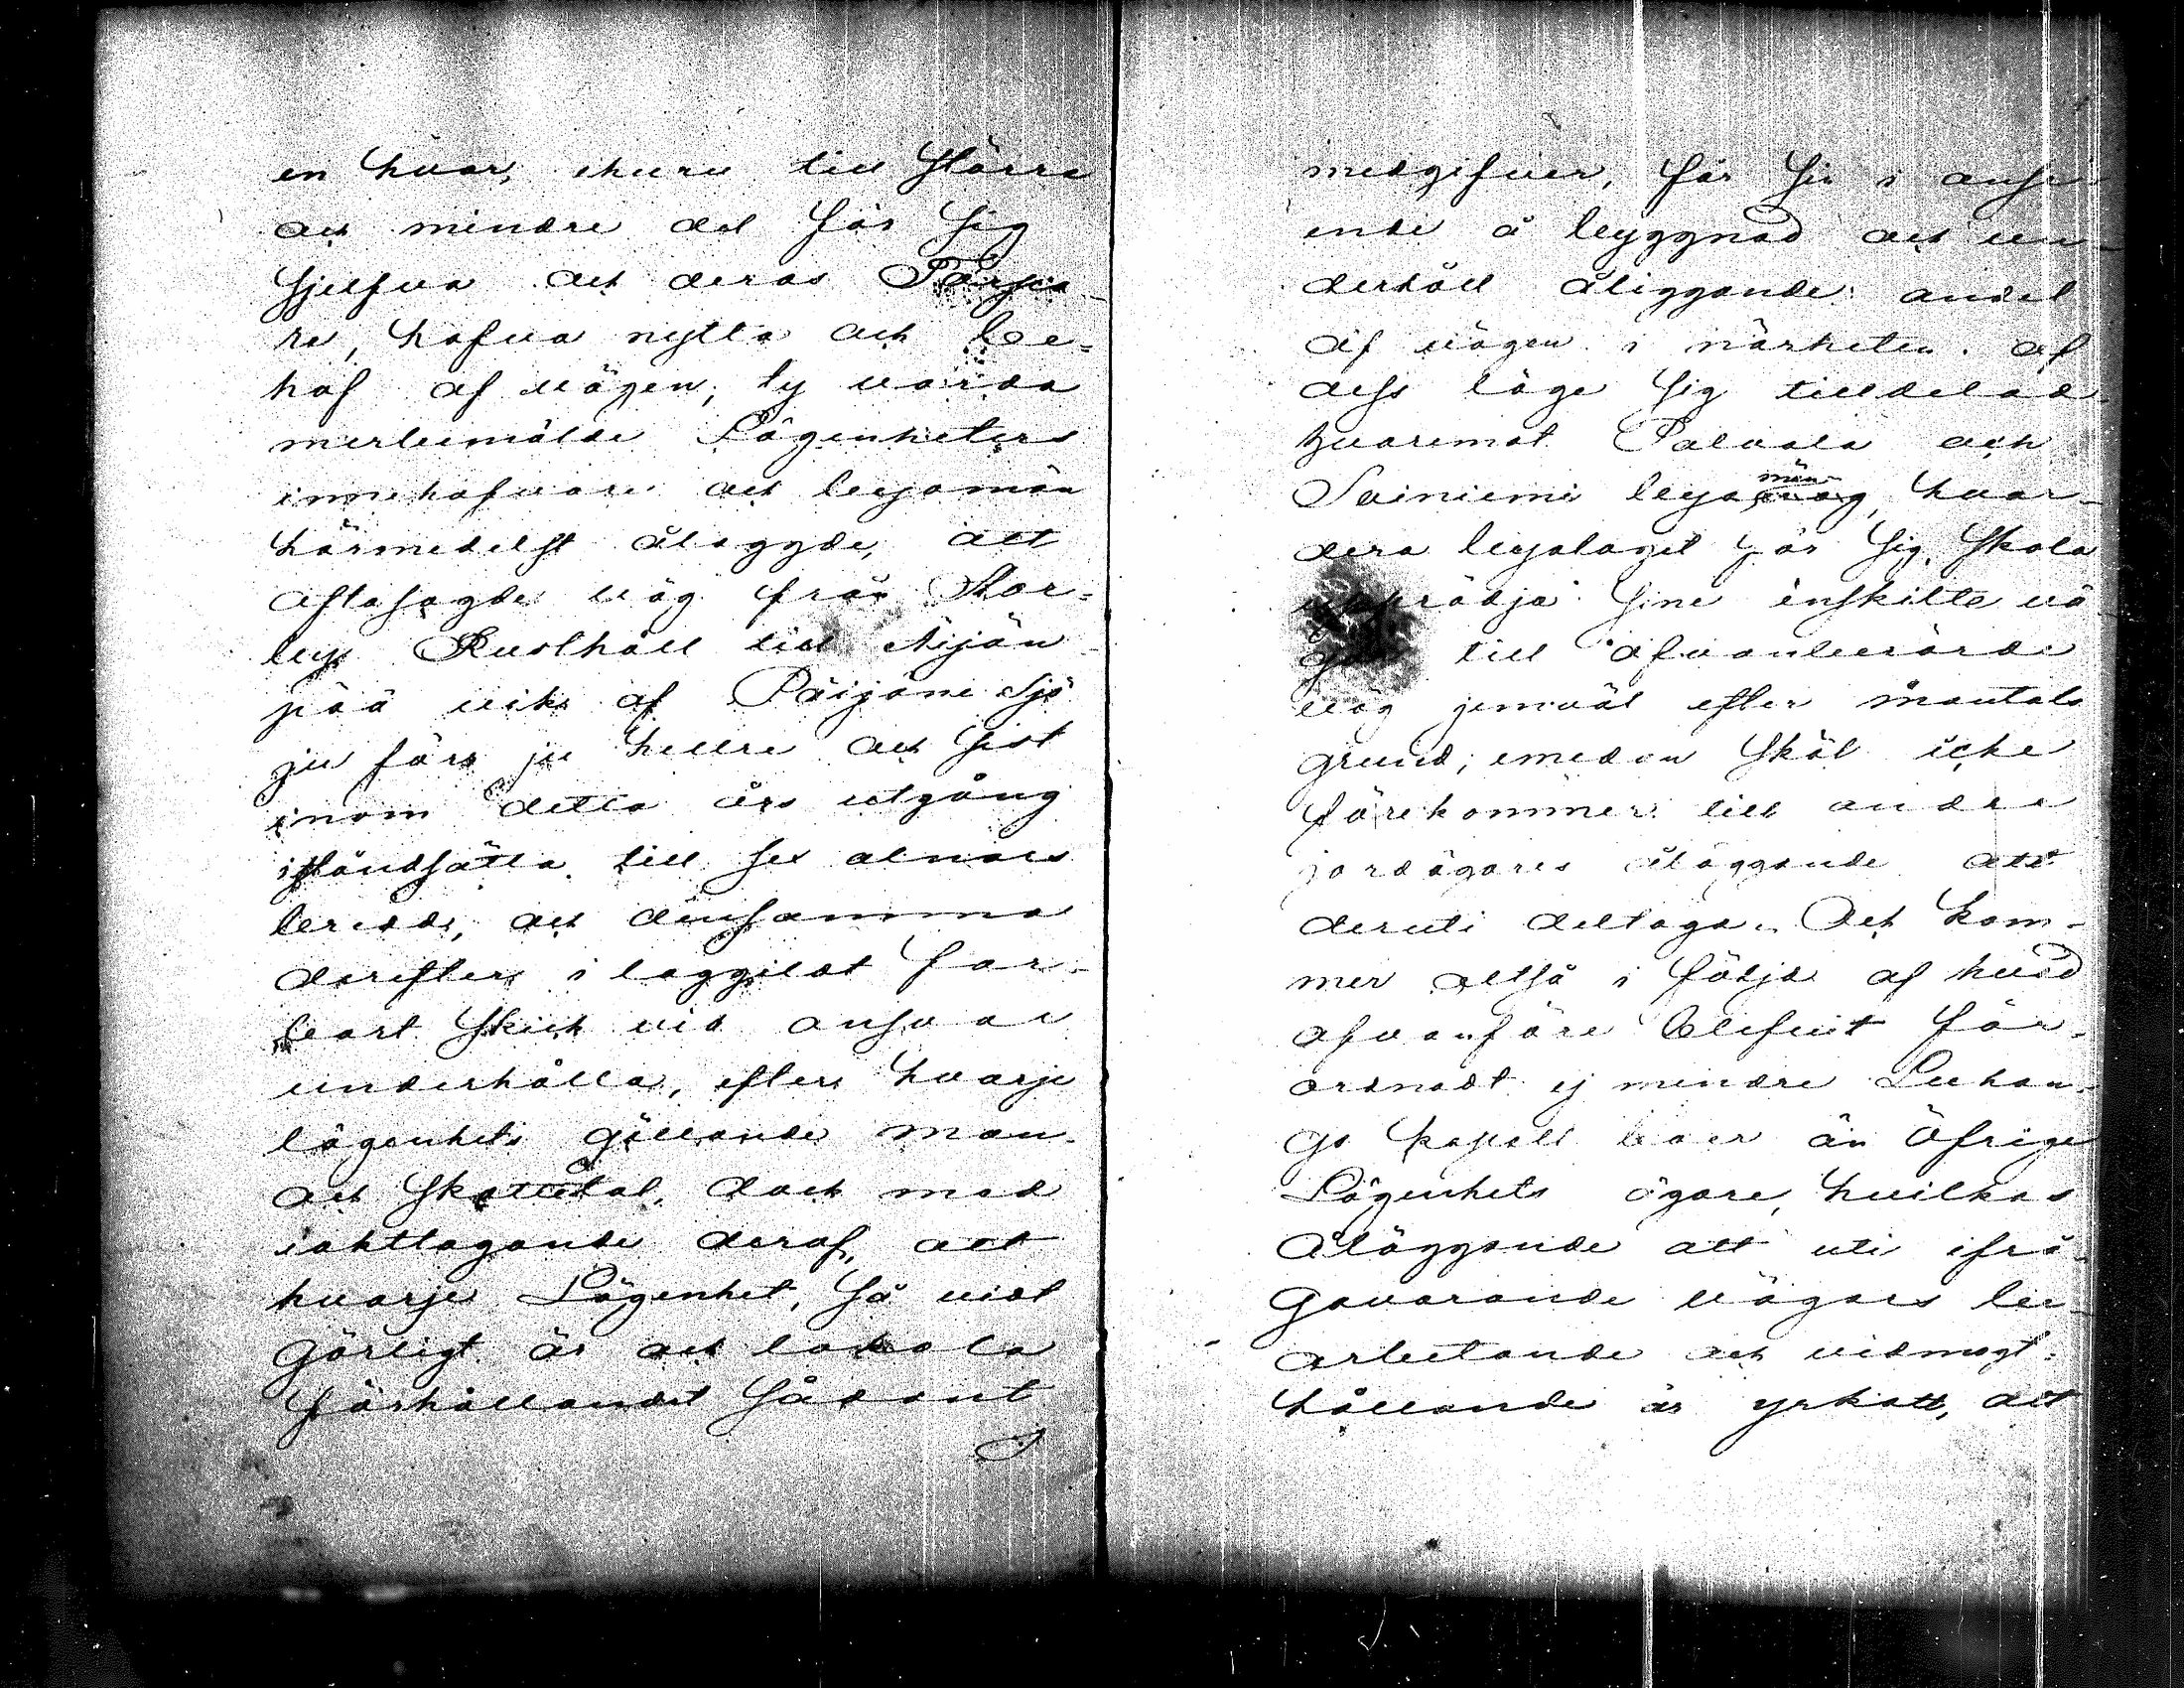 en hvar, ehuru till större
och mindre del för sig
sjelfva och deras Torpa-
re, hafva nytta och be-
hof af vägen; ty varda
merbemälde Lägenheters
innehafvare och byamän
härmedelst ålaggde, att
oftasagde väg från Stor-
by Rusthåll till Äijän-
pää vik af Päijäne Sjö
ju förr ju hellre och sist
inom detta års utgång
iståndsätta till sex alnars
bredd, och densamma
derefter i laggildt far-
bart skick vid ansvar
underhålla, efter hvarje
lägenhets gällande man-
och skattetal, dock med
iakttagande deraf, att
hvarje Lägenhet, så vidt
görligt är och lokala
förhållandet sådant
medgifver, får sin i anse-
ende å byggnad och un-
derhåll åliggande andel
af vägen i närheten af
dess läge sig tilldelad
hvaremot Palvala och
Soiniemi byamän, hvar-
dera byalaget för sig, skola
upprödja sine enskilte vä-
gar till ofvanberörde
väg jemväl efter mantals
grund, emedan skäl icke
förekommer till andre
jordägares åläggande att
deruti deltaga. Och kom-
mer altså i följd af hvad
ofvanföre blifvit för-
ordnadt ej mindre Luhan-
go kapell boer än öfrige
Lägenhets ägare, hvilkas
åläggande att uti ifrå-
gavarande vägars be-
arbetande och vidmagt-
hållande är yrkatt, att